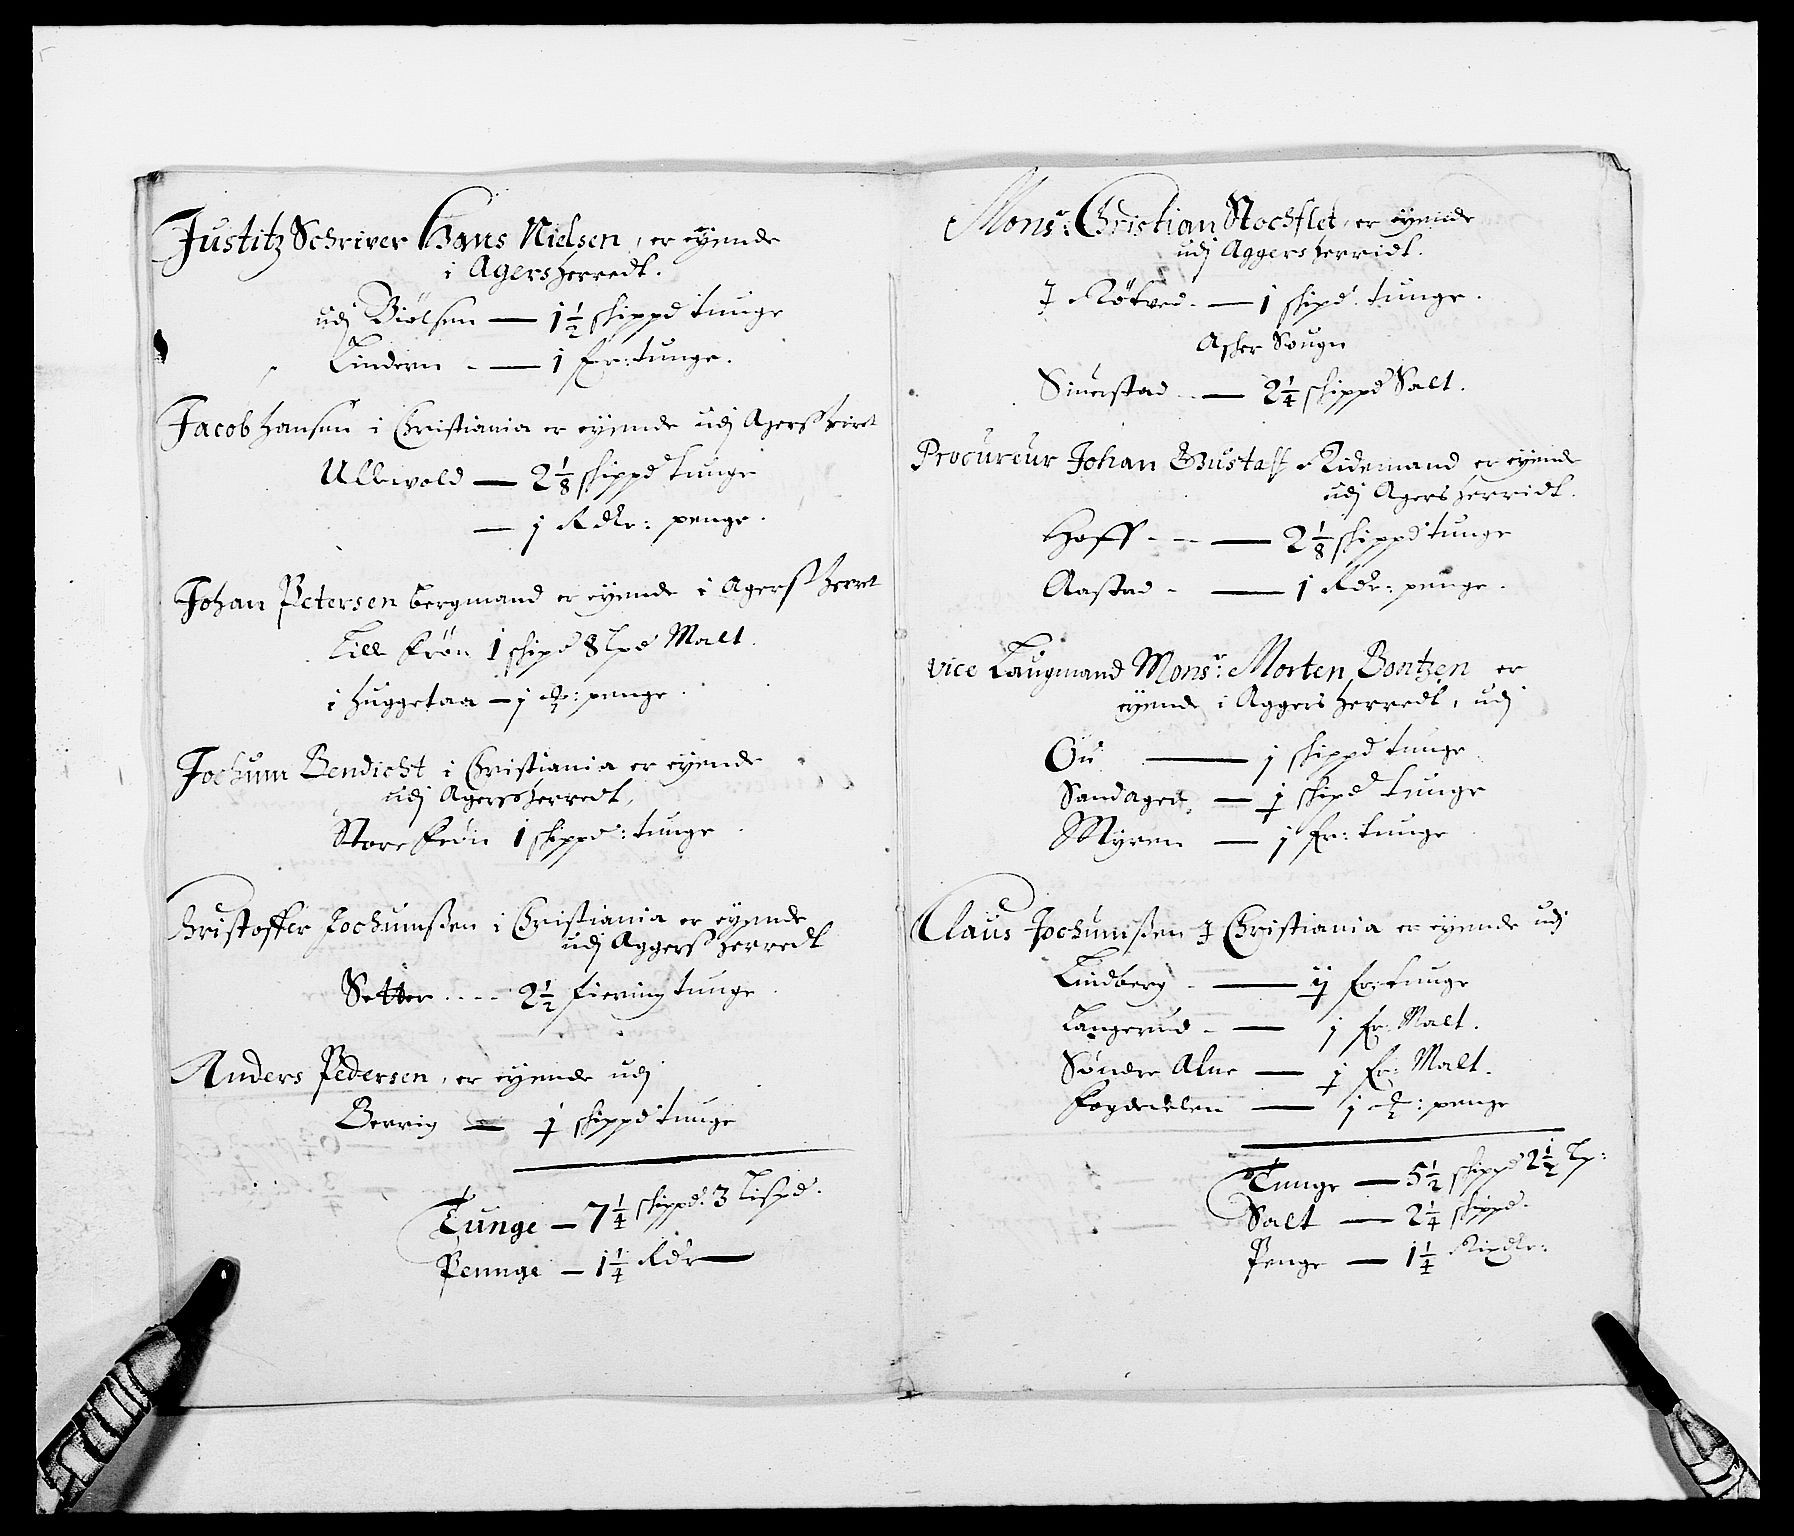 Justitz Schriver Hans Nielsen, er eyende
i Agersherredt.
udj Biølsen — 1 1/2 schippd tunge
Lindern - — 1 Fr: tunge.
Jacob Hansen i Christiania er eyende udj
Ullevold — 2 1/8 schippd tunge
— 1 Rdlr: penge.
Johan Petersen bergmand er eyende i Agerss herret
Lille Frøn 1 schipd 8 Lpd Malt.
i Huggetaa — 1 penge.
Jochum Bendicht i Christiania er eyende
udj Agersherredt,
Store Frøn 1 schippd: tunge
Christoffer Jochumssen i Christiania er eyende
udj Aggerss herredt
Setter .... 2 1/2 fiering tunge
Anders Pedersen, er eyende udj
Berrig — 1 schippd tunge
Tunge — 7 1/4 schippd: 3 Lispd.
Pennge — 1 1/4 Rdr
Monsr: Christian Stochflet, er eyende
udj Aggers herridt.
J Røtved. — 1 schipd. tunge.
Asker Sougn
Siuerstad — 2 1/4 schippd Salt.
Procureur Johan Gustaff Ridemand er eyende
udj Agers herridt.
Hoff - - — 2 1/8 schippd tunge
Aastad - — 1 Rdr: penge.
vice Laugmand Monsr: Morten Bontzen er
eyende i Aggers herredt, udj
Ou — 1 schippd tunge
Sandager, — 1 schipd tunge
Myren — 1 Fr: tunge
Claus Jochumssen J Christiania er eyende udj
Lindberg - — Fr: tunge
Langerud - — 1 Fr: Malt.
Søndre Alne — 1 Fr: Malt.
Fogdedelen — 1 penge
Tunge — 5 1/2 schippd 2 1/2 Lp:
Salt — 2 1/4 schippd.
Penge — 1 1/4 Rixdlr: